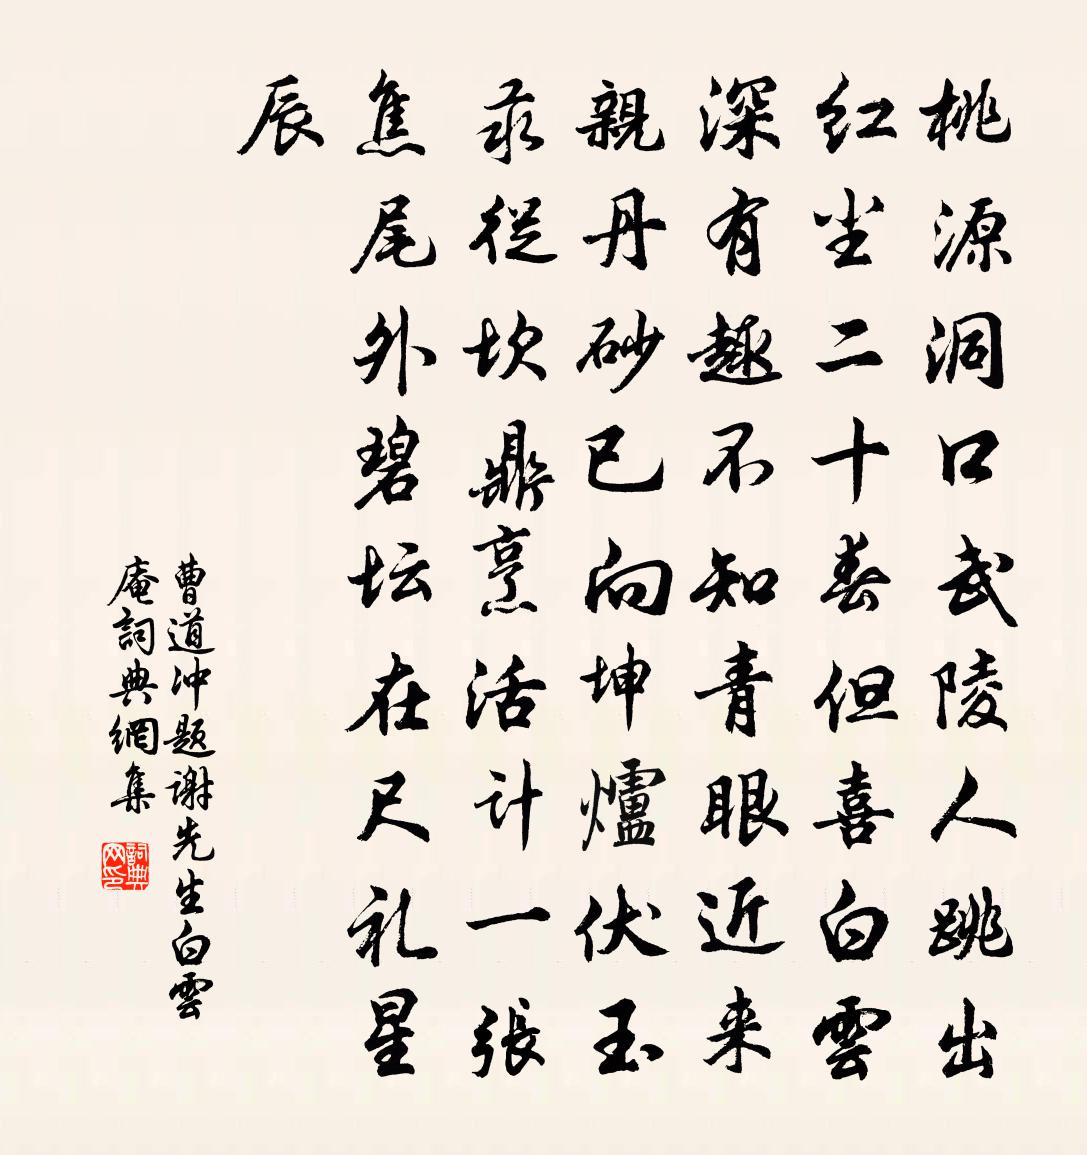 桃源洞口武陵人跳出
红尘二十春但喜白雲
深有趣不知青眼近来
親丹砂已向坤爐伏玉
汞從坎鼎烹活计一張
焦尾外碧坛在尺礼星
辰
曹道冲题谢先生白雲
庵詞典網集
詞典网印